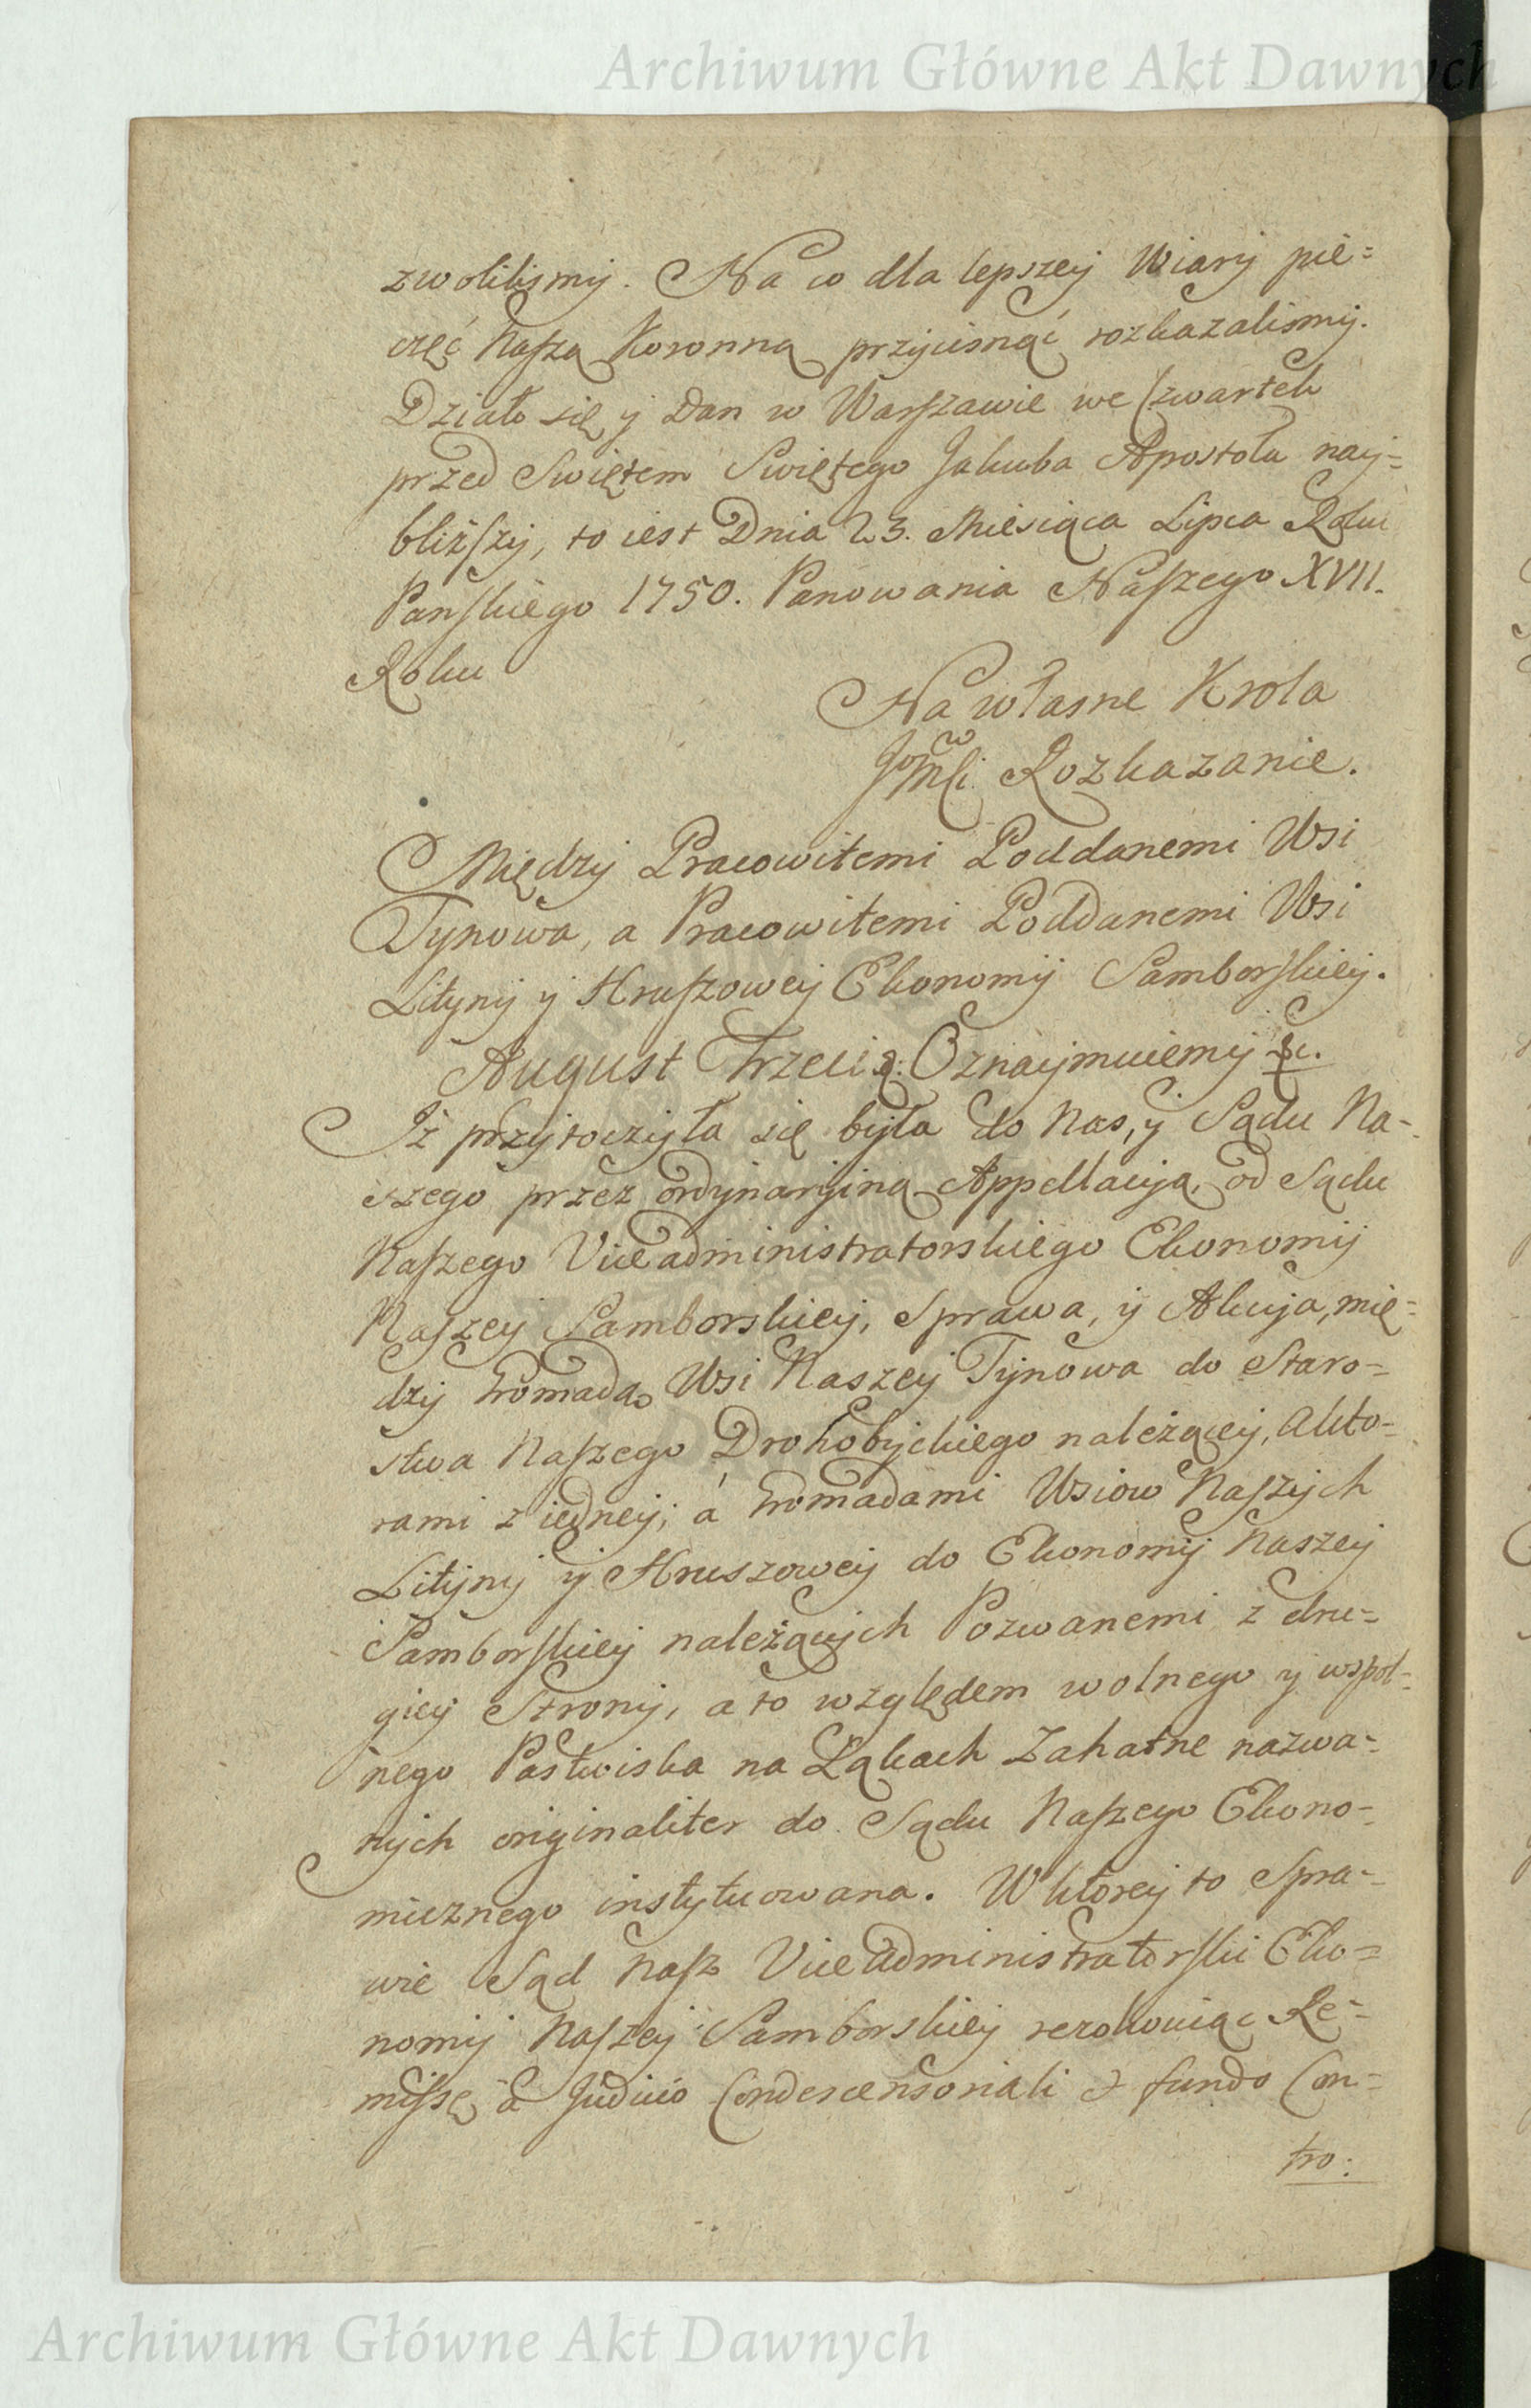 Archiwum Główne Akt Dawnych
zwolilismy. Na co dla lepszey Wiary pie=
częć Naszą Koronną przycisnąć rozkazalismy.
Działo się y Dan w Warszawie we Czwartek
przed Swiętem Swiętego Jakuba Apostoła nay=
bliższy, to iest Dnia 23. Miesiąca Lipca Roku
Panskiego 1750. Panowania Naszego XVII.
Roku
Na własne Krola
Jo Mści Rozkazanie.
Między Pracowitemi Poddanemi Wsi
Tynowa, a Pracowitemi Poddanemi Wsi
Lityny y Hruszowey Ekonomij Samborskiey.
August Trzeci &. Oznaymuiemy &c.
Iż przytoczyła się była do Nas, y Sądu Na-
szego przez ordynaryiną Appellacyą, od Sądu
Naszego Viceadministratorskiego Ekonomij
Naszey Samborskiey, Sprawa, y Akcyja, mię=
dzy Gromadą Wsi Naszey Tynowa do Staro=
stwa Naszego Drohobyckiego należącey, Akto=
rami z iedney; á Gromadami Wsiow Naszych
Lityny y Hruszowey do Ekonomij Naszey
Samborskiey należących Pozwanemi z dru=
giey Strony, a to względem wolnego y wspol=
nego Pastwiska na Łąkach Zahatne nazwa=
nych originaliter do Sądu Naszego Ekono=
micznego instytuowana. W ktorey to Spra=
wie Sąd Nasz Viceadministratorski Eko=
nomij Naszey Samborskiey rezolwuiąc Re=
missę à Judicio Condescensoriali & fundo Con=
tro:
Archiwum Główne Akt Dawnych